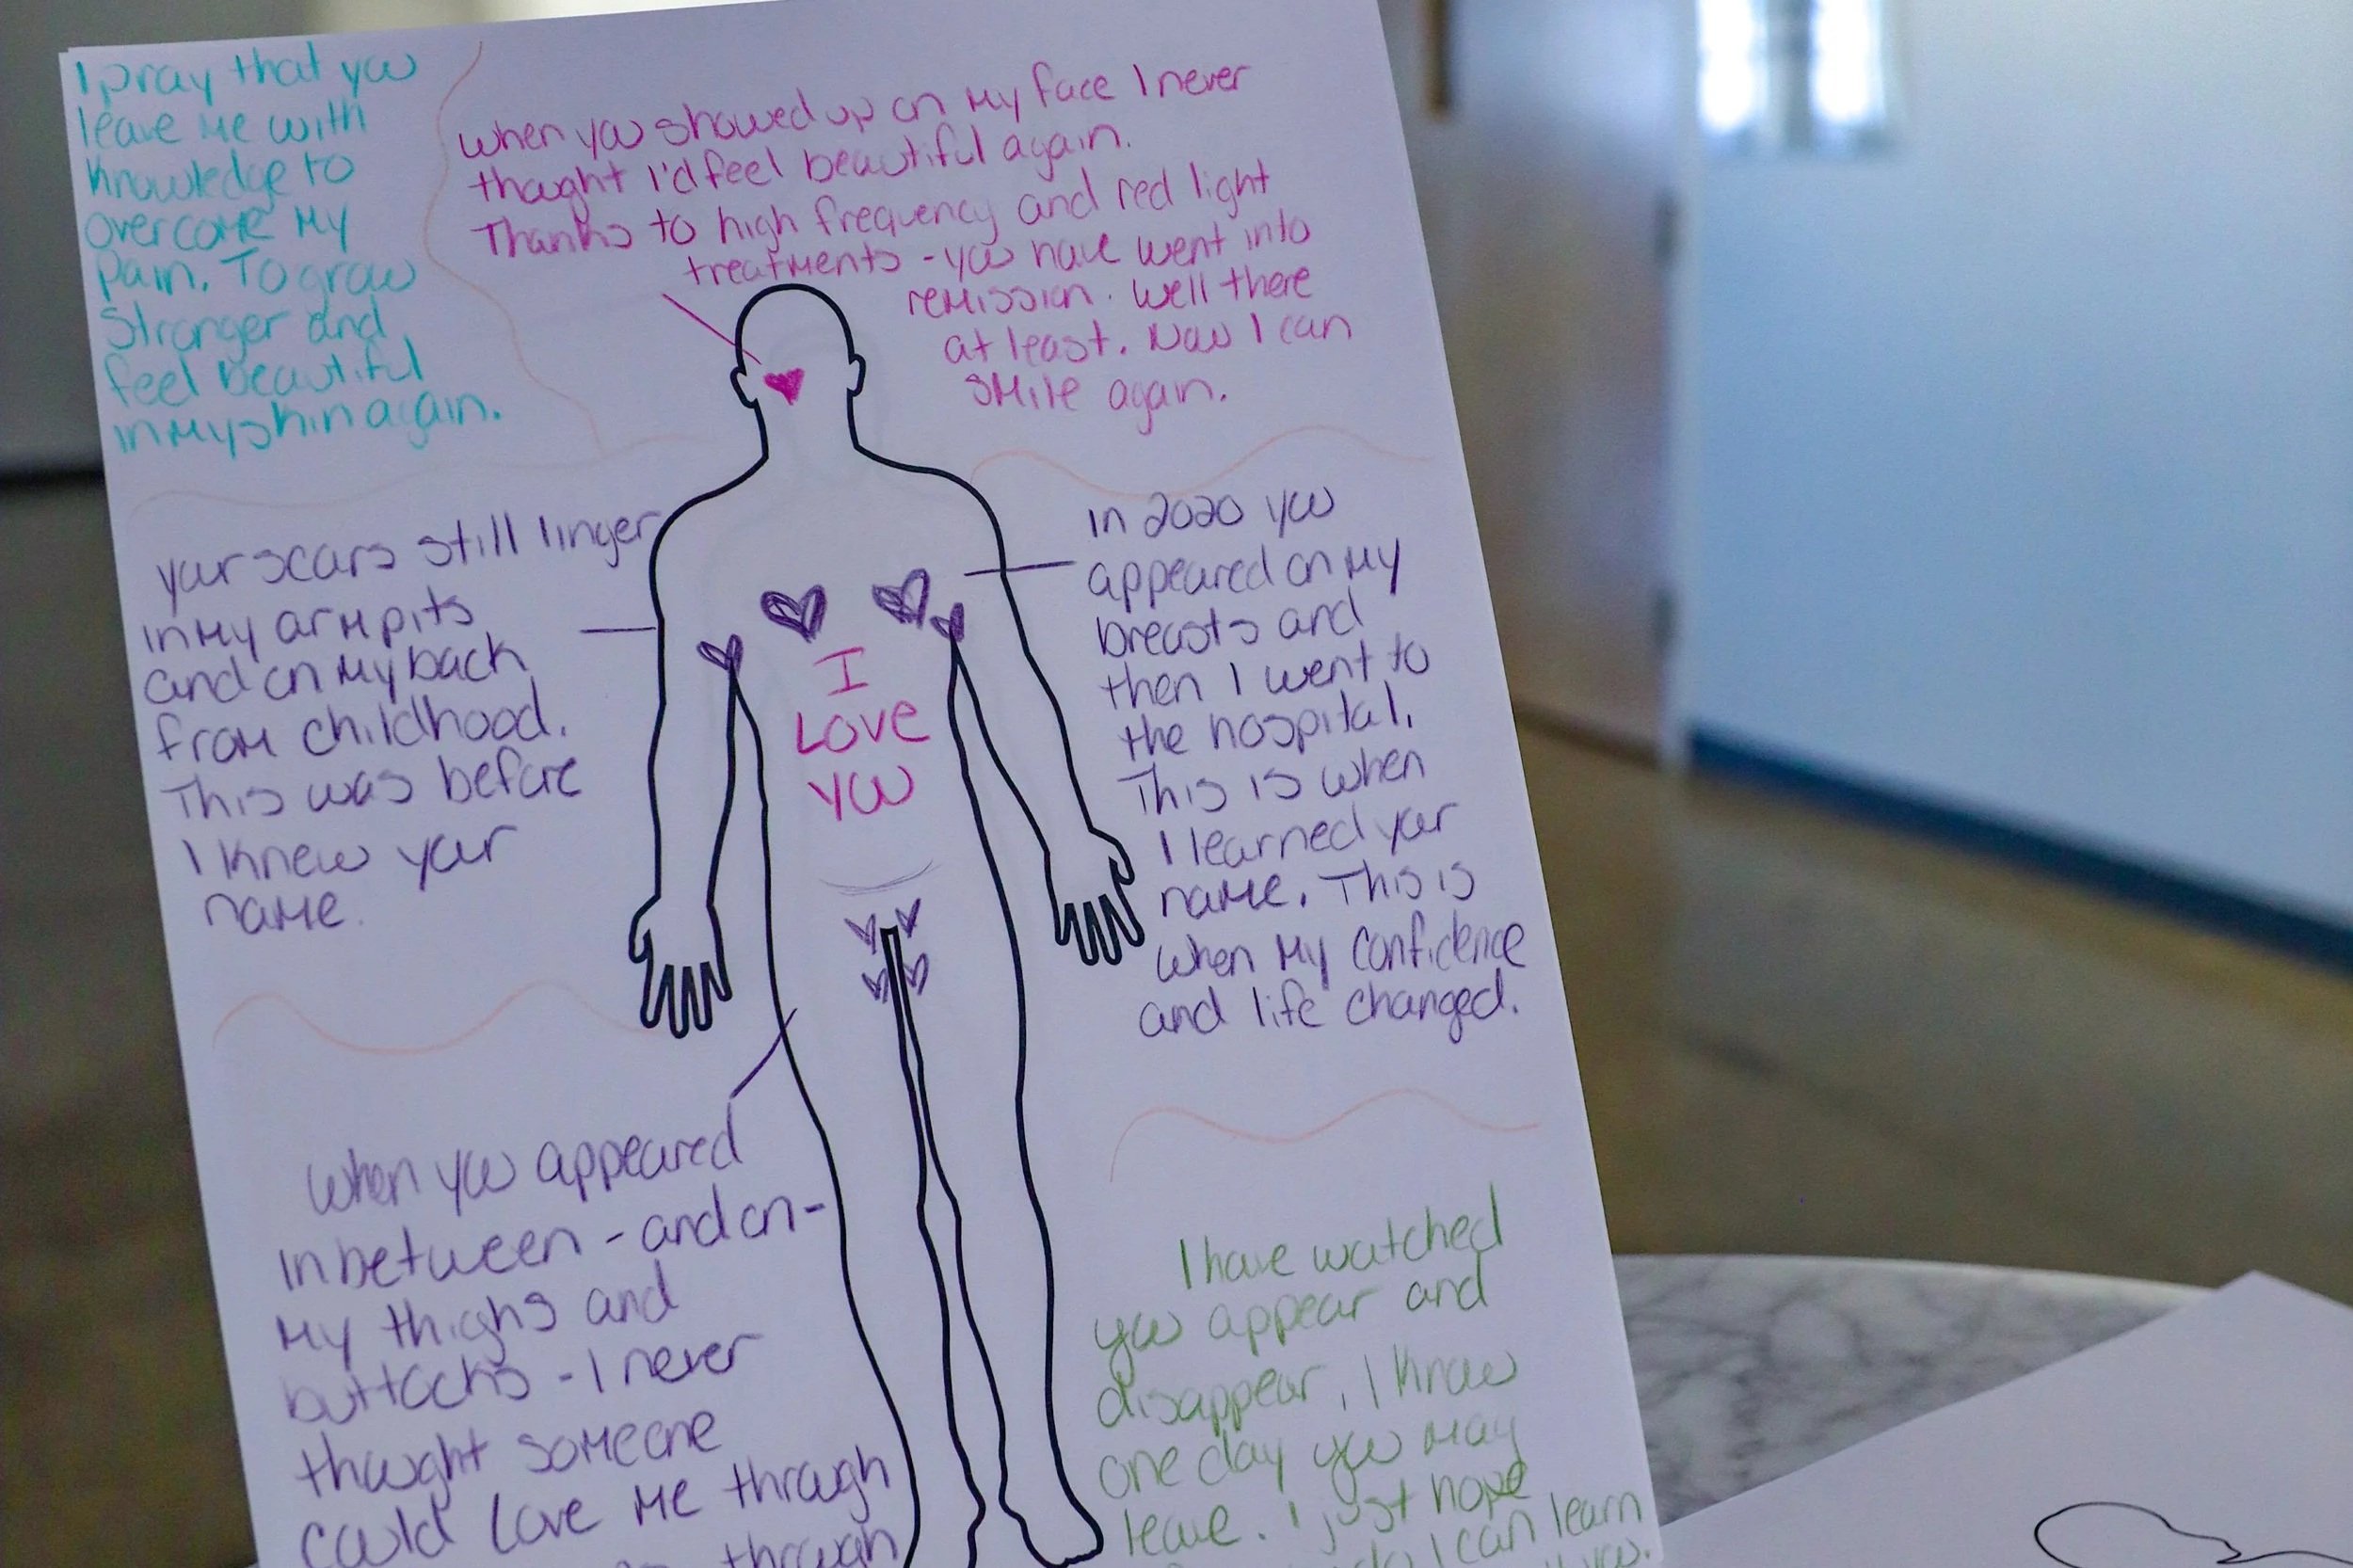 I pray that you
leave me with
knowledge to
overcome my
pain. To grow
stronger and
feel beautiful
in my skin again.
When you showed up on my face I never
thought I'd feel beautiful again.
Thanks to high frequency and red light
treatments - you have went into
remission. Well there
at least. Now I can
smile again.
your scars still linger
in my armpits
and on my back
from childhood.
This was before
I knew your
name.
In 2020 you
appeared on my
breasts and
then I went to
the hospital.
This is when
I learned your
name. This is
when my confidence
and life changed.
I
LOVE
YOU
When you appeared
in between - and on -
my thighs and
buttocks - I never
thought someone
could love me through
through
I have watched
you appear and
disappear, I know
one day you may
leave. I just hope
I can learn